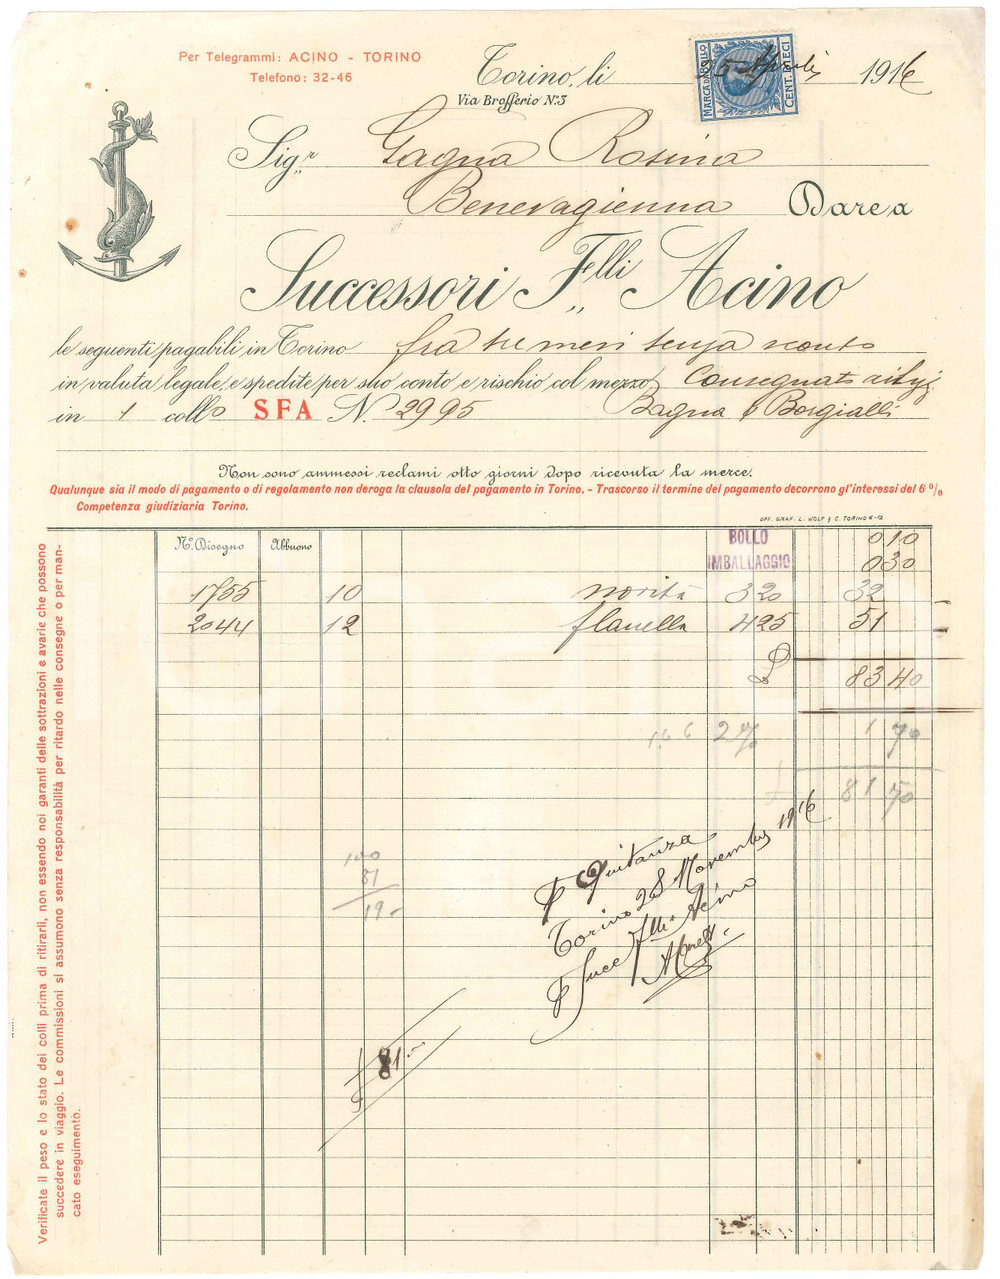 Per Telegrammi: ACINO - TORINO
Telefono: 32-46
Torino, li 25 Aprile 1916
MARCA DA BOLLO
CENT. DIECI
Via Brofferio N.3
Sig.r Gagna Rosina
Benevagienna Dare a
Successori F.lli Acino
le seguenti pagabili in Torino fra tre mesi senza sconto
in valuta legale, e spedite per suo conto e rischio col mezzo Consegnato ai Sigg
in 1 collo SFA N. 2995 Bagna & Borgialli
Non sono ammessi reclami otto giorni dopo ricevuta la merce.
Qualunque sia il modo di pagamento o di regolamento non deroga la clausola del pagamento in Torino. - Trascorso il termine del pagamento decorrono gl'interessi del 6 %
Competenza giudiziaria Torino.
OFF. GRAF. L. WOLF & C. TORINO 6-12
N.o Disegno Abbuono BOLLO 0 10
IMBALLAGGIO 0 30
1755 10 novità 3 20 32
2044 12 flanella 4 25 51
L 83 40
1.66 2% 1 70
£ 81 70
100
81
19 -
P Quitanza
Torino 28 Novembre 1916
P Succ Flli Acino
81
Verificate il peso e lo stato dei colli prima di ritirarli, non essendo noi garanti delle sottrazioni e avarie che possono
succedere in viaggio. Le commissioni si assumono senza responsabilità per ritardo nelle consegne o per man-
cato eseguimento.